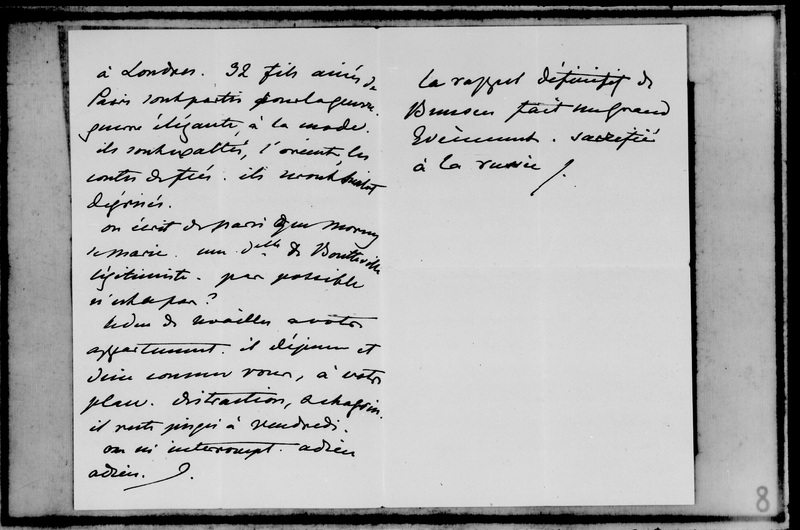 à Londres. 32 fils ainés de
Paris sont partis pour la guerre.
guerre élégante, à la mode.
ils sont exaltés, l'orient, les
contes de fées. ils seront bientot
dégrisés.
on écrit de paris que Morny
se marie. une d'elle de Boutteville
légitimiste. pas possible
n'est ce pas?
le duc de noailles a votre
appartement. il déjeune et
dine comme vous, à votre
place. distraction, & chagrin.
il reste jusqu'à vendredi.
on m'interrompt. adieu
adieu.
la rappel définitif de
Bunsen fait un grand
Evènement. sacrifié
à la russie
8